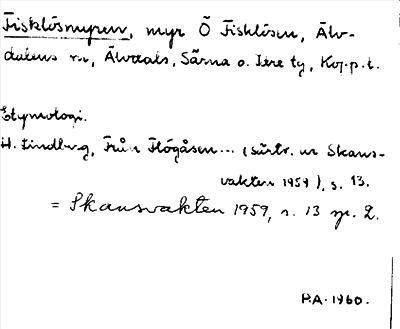 Fisklösmyren, myr Ö Fisklösen, Älv-
dalens sn, Älvdals, Särna o. Idre tg, Kop. l.
Etymologi.
H. Lindberg, Från Flögåsen... (särtr. ur Skans-
vakten 1959), s. 13.
= Skansvakten 1959, s. 13 sp. 2.
P.A. 1960.